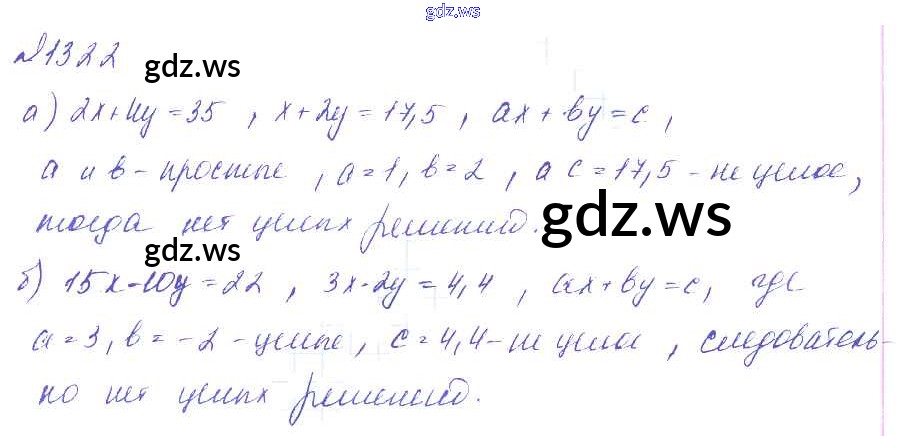 gdz.ws
№1322
gdz.ws
а) 2x+4y=35 , x+2y=17,5 , ax+by=c ,
а и в - простые , a=1, b=2 , а c=17,5 - не целое,
тогда нет целых решений.
gdz.ws
gdz.ws
б) 15x-10y=22 , 3x-2y=4,4 , ax+by=c, где
a=3, b=-2 - целые , c=4,4 - не целое , следователь-
но нет целых решений.
gdz.ws
gdz.ws